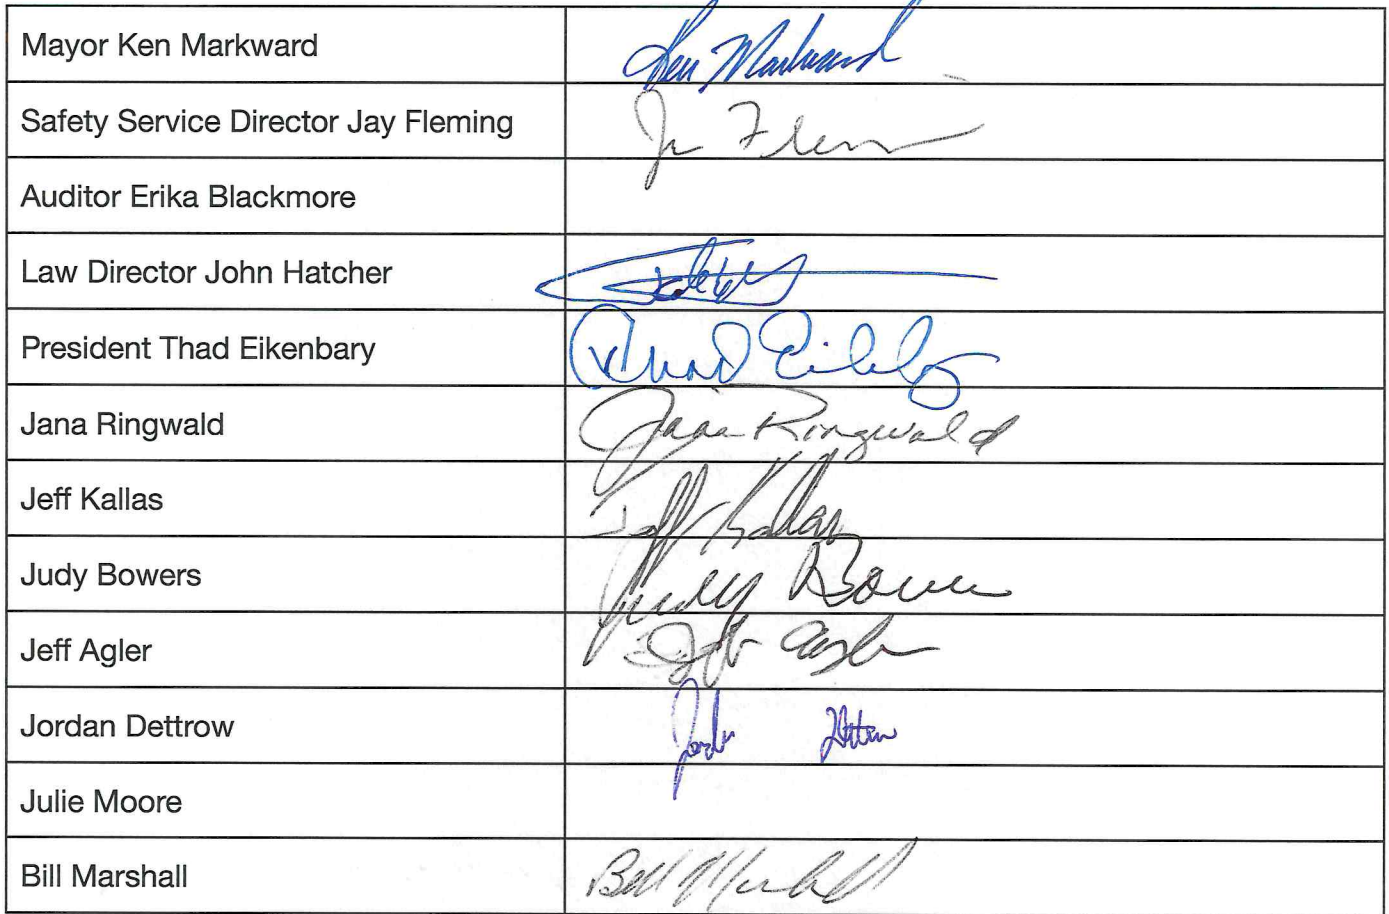 Mayor Ken Markward Ken Markward
Safety Service Director Jay Fleming
Auditor Erika Blackmore
Law Director John Hatcher
President Thad Eikenbary Thad
Jana Ringwald Jana Ringwald
Jeff Kallas Jeff Kallas
Judy Bowers Judy Bowers
Jeff Agler Jeff Agler
Jordan Dettrow
Julie Moore
Bill Marshall Bill Marshall